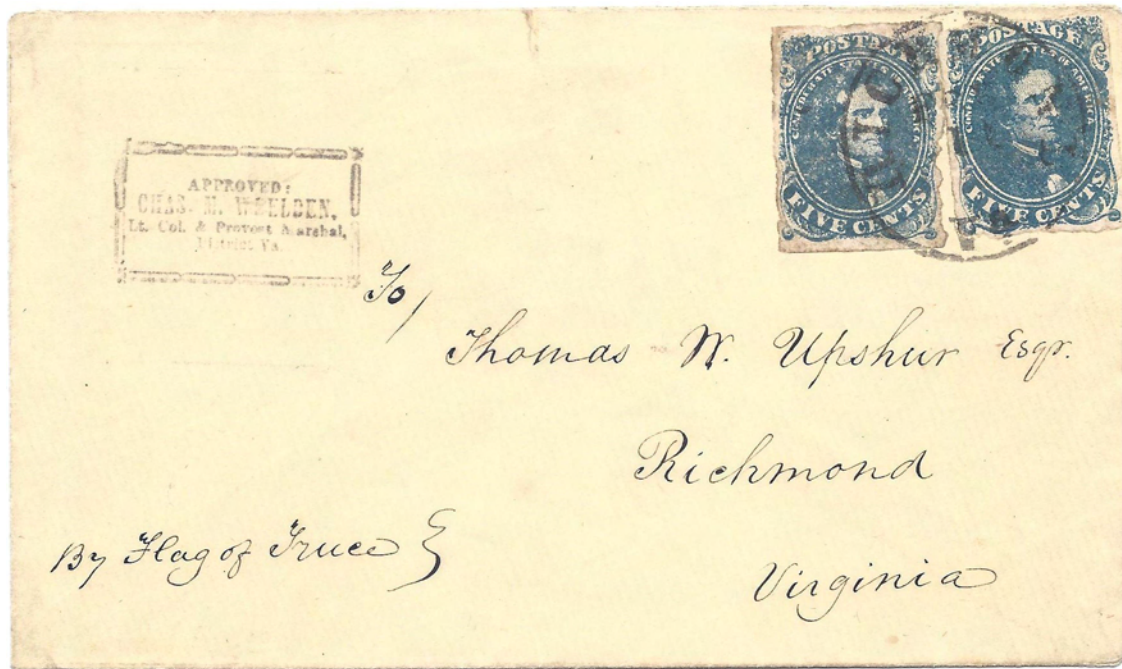 POSTAGE
CONFEDERATE STATES OF AMERICA
FIVE CENTS
POSTAGE
CONFEDERATE STATES OF AMERICA
FIVE CENTS
RICHMOND
VA.
APPROVED:
CHAS. M. WHELDEN,
Lt. Col. & Provost Marshal,
District Va.
To
Thomas W. Upshur Esqr.
Richmond
Virginia
By Flag of Truce